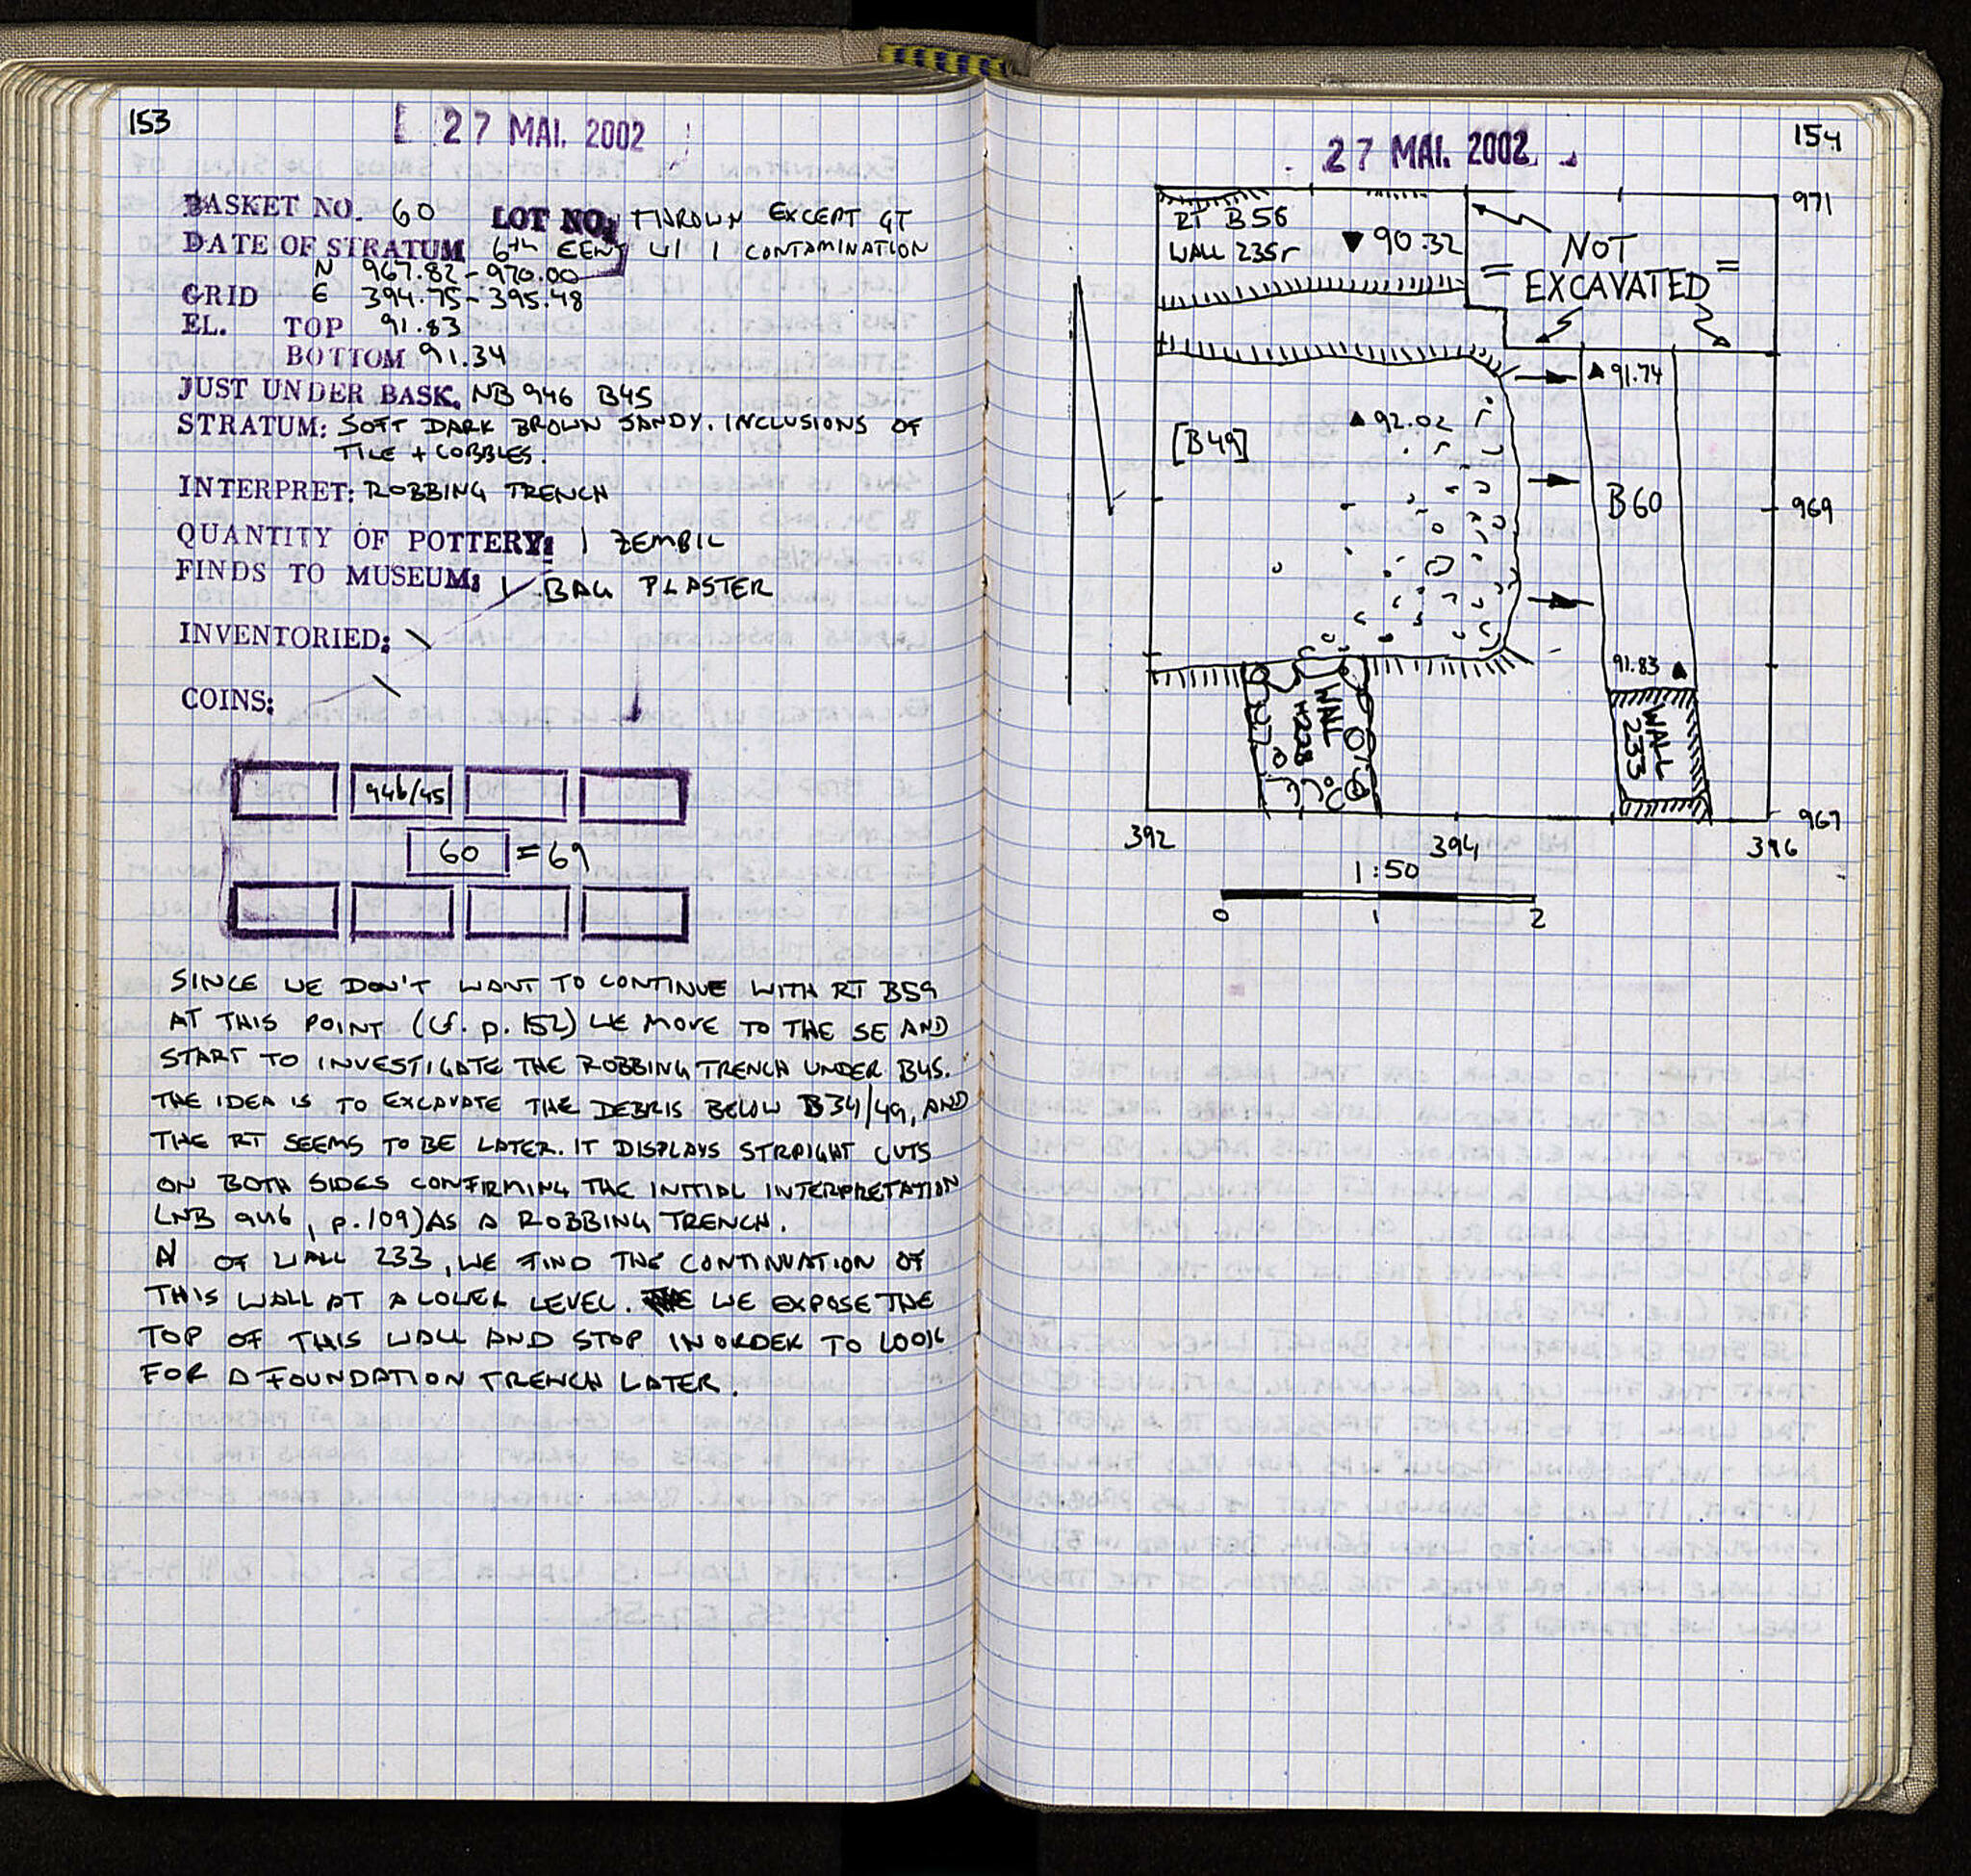 153
27 MAI. 2002
BASKET NO. 60 LOT NO: THROWN EXCEPT GT
DATE OF STRATUM 6TH CENT W/ 1 CONTAMINATION
N 967.82-970.00
GRID E 394.75-395.48
EL. TOP 91.83
BOTTOM 91.34
JUST UNDER BASK. NB 946 B45
STRATUM: SOFT DARK BROWN SANDY. INCLUSIONS OF
TILE + COBBLES.
INTERPRET: ROBBING TRENCH
QUANTITY OF POTTERY: 1 ZEMBIL
FINDS TO MUSEUM: 1 BAG PLASTER
INVENTORIED: \
COINS: \
946/45
60 = 69
SINCE WE DON'T WANT TO CONTINUE WITH RT B59
AT THIS POINT (CF. P. 152) WE MOVE TO THE SE AND
START TO INVESTIGATE THE ROBBING TRENCH UNDER B45.
THE IDEA IS TO EXCAVATE THE DEBRIS BELOW B34/49, AND
THE RT SEEMS TO BE LATER. IT DISPLAYS STRAIGHT CUTS
ON BOTH SIDES CONFIRMING THE INITIAL INTERPRETATION
(NB 946, P. 109) AS A ROBBING TRENCH.
N OF WALL 233, WE FIND THE CONTINUATION OF
THIS WALL AT A LOWER LEVEL. WE EXPOSE THE
TOP OF THIS WALL AND STOP IN ORDER TO LOOK
FOR A FOUNDATION TRENCH LATER.
154
27 MAI. 2002
971
RT B56
WALL 235r ▼ 90.32
NOT
= EXCAVATED =
▲ 91.74
▲ 92.02
[B49]
B60
969
91.83 ▲
WALL
H228
WALL
233
967
392 394 396
1:50
0 1 2